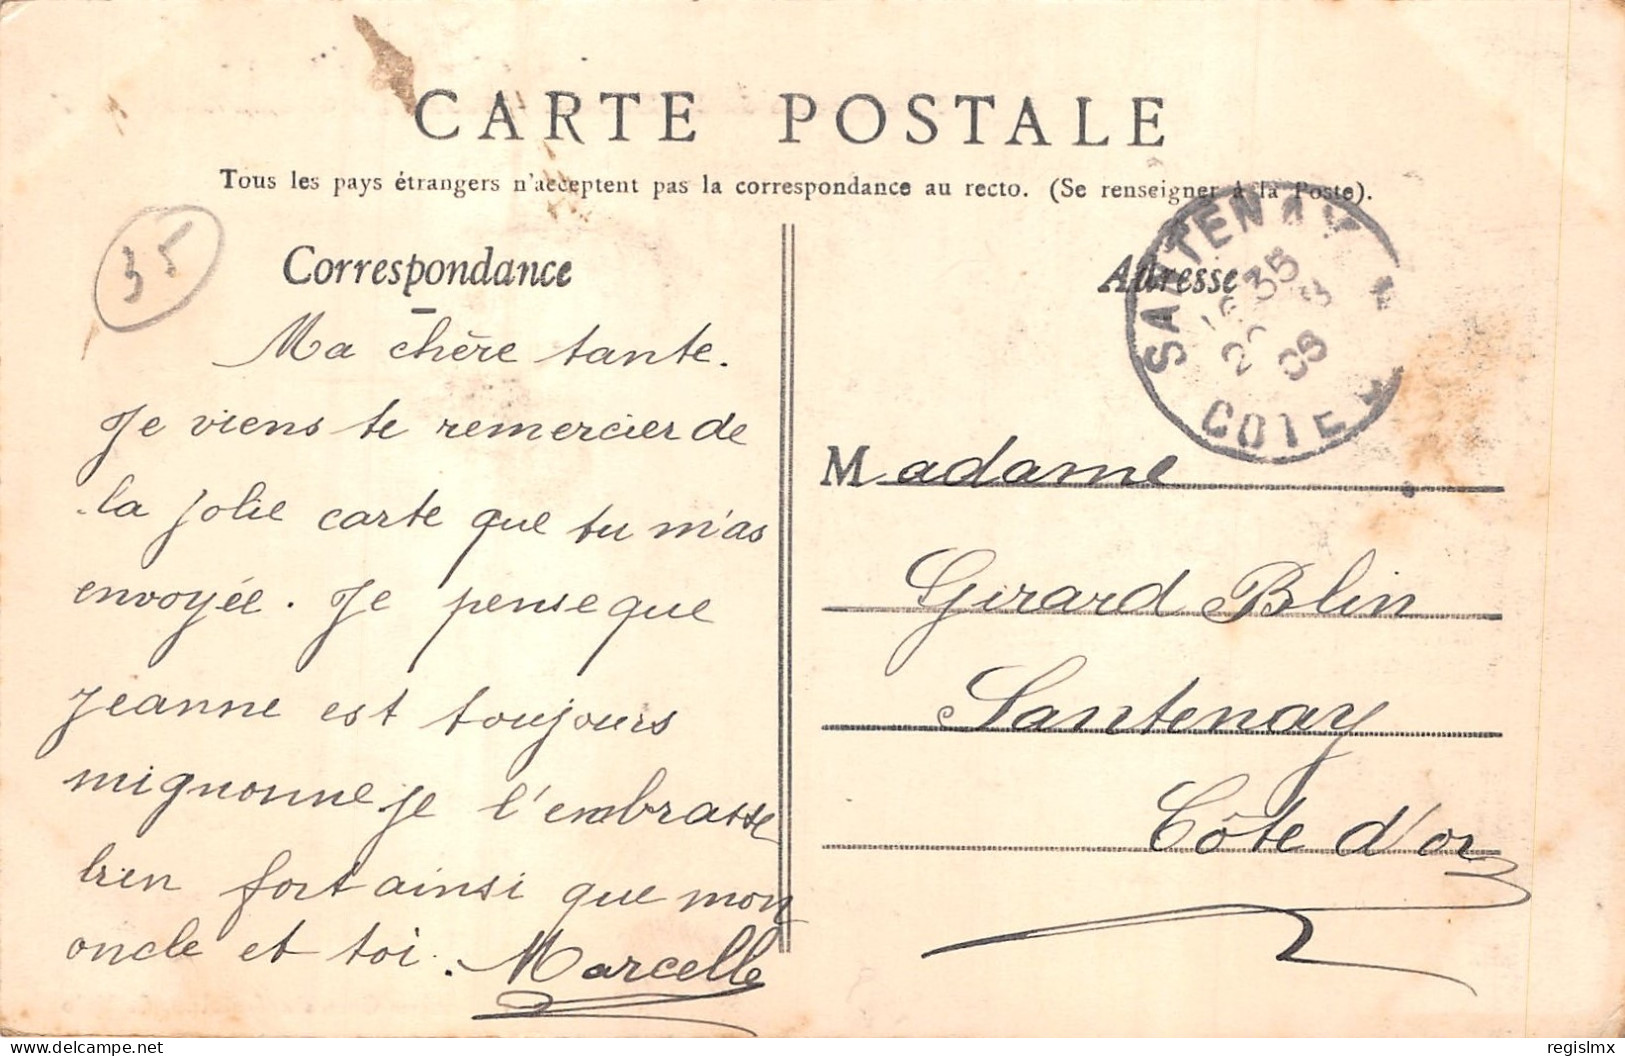 CARTE POSTALE
Tous les pays étrangers n'acceptent pas la correspondance au recto. (Se renseigner à la Poste).
35
Correspondance
Ma chère tante.
Je viens te remercier de
la jolie carte que tu m'as
envoyée. Je pense que
Jeanne est toujours
mignonne je l'embrasse
bien fort ainsi que mon
oncle et toi. Marcelle
Adresse
SANTENAY
35
COTE
Madame
Girard Blin
Santenay
Côte d'or
Delcampe.net
regislmx